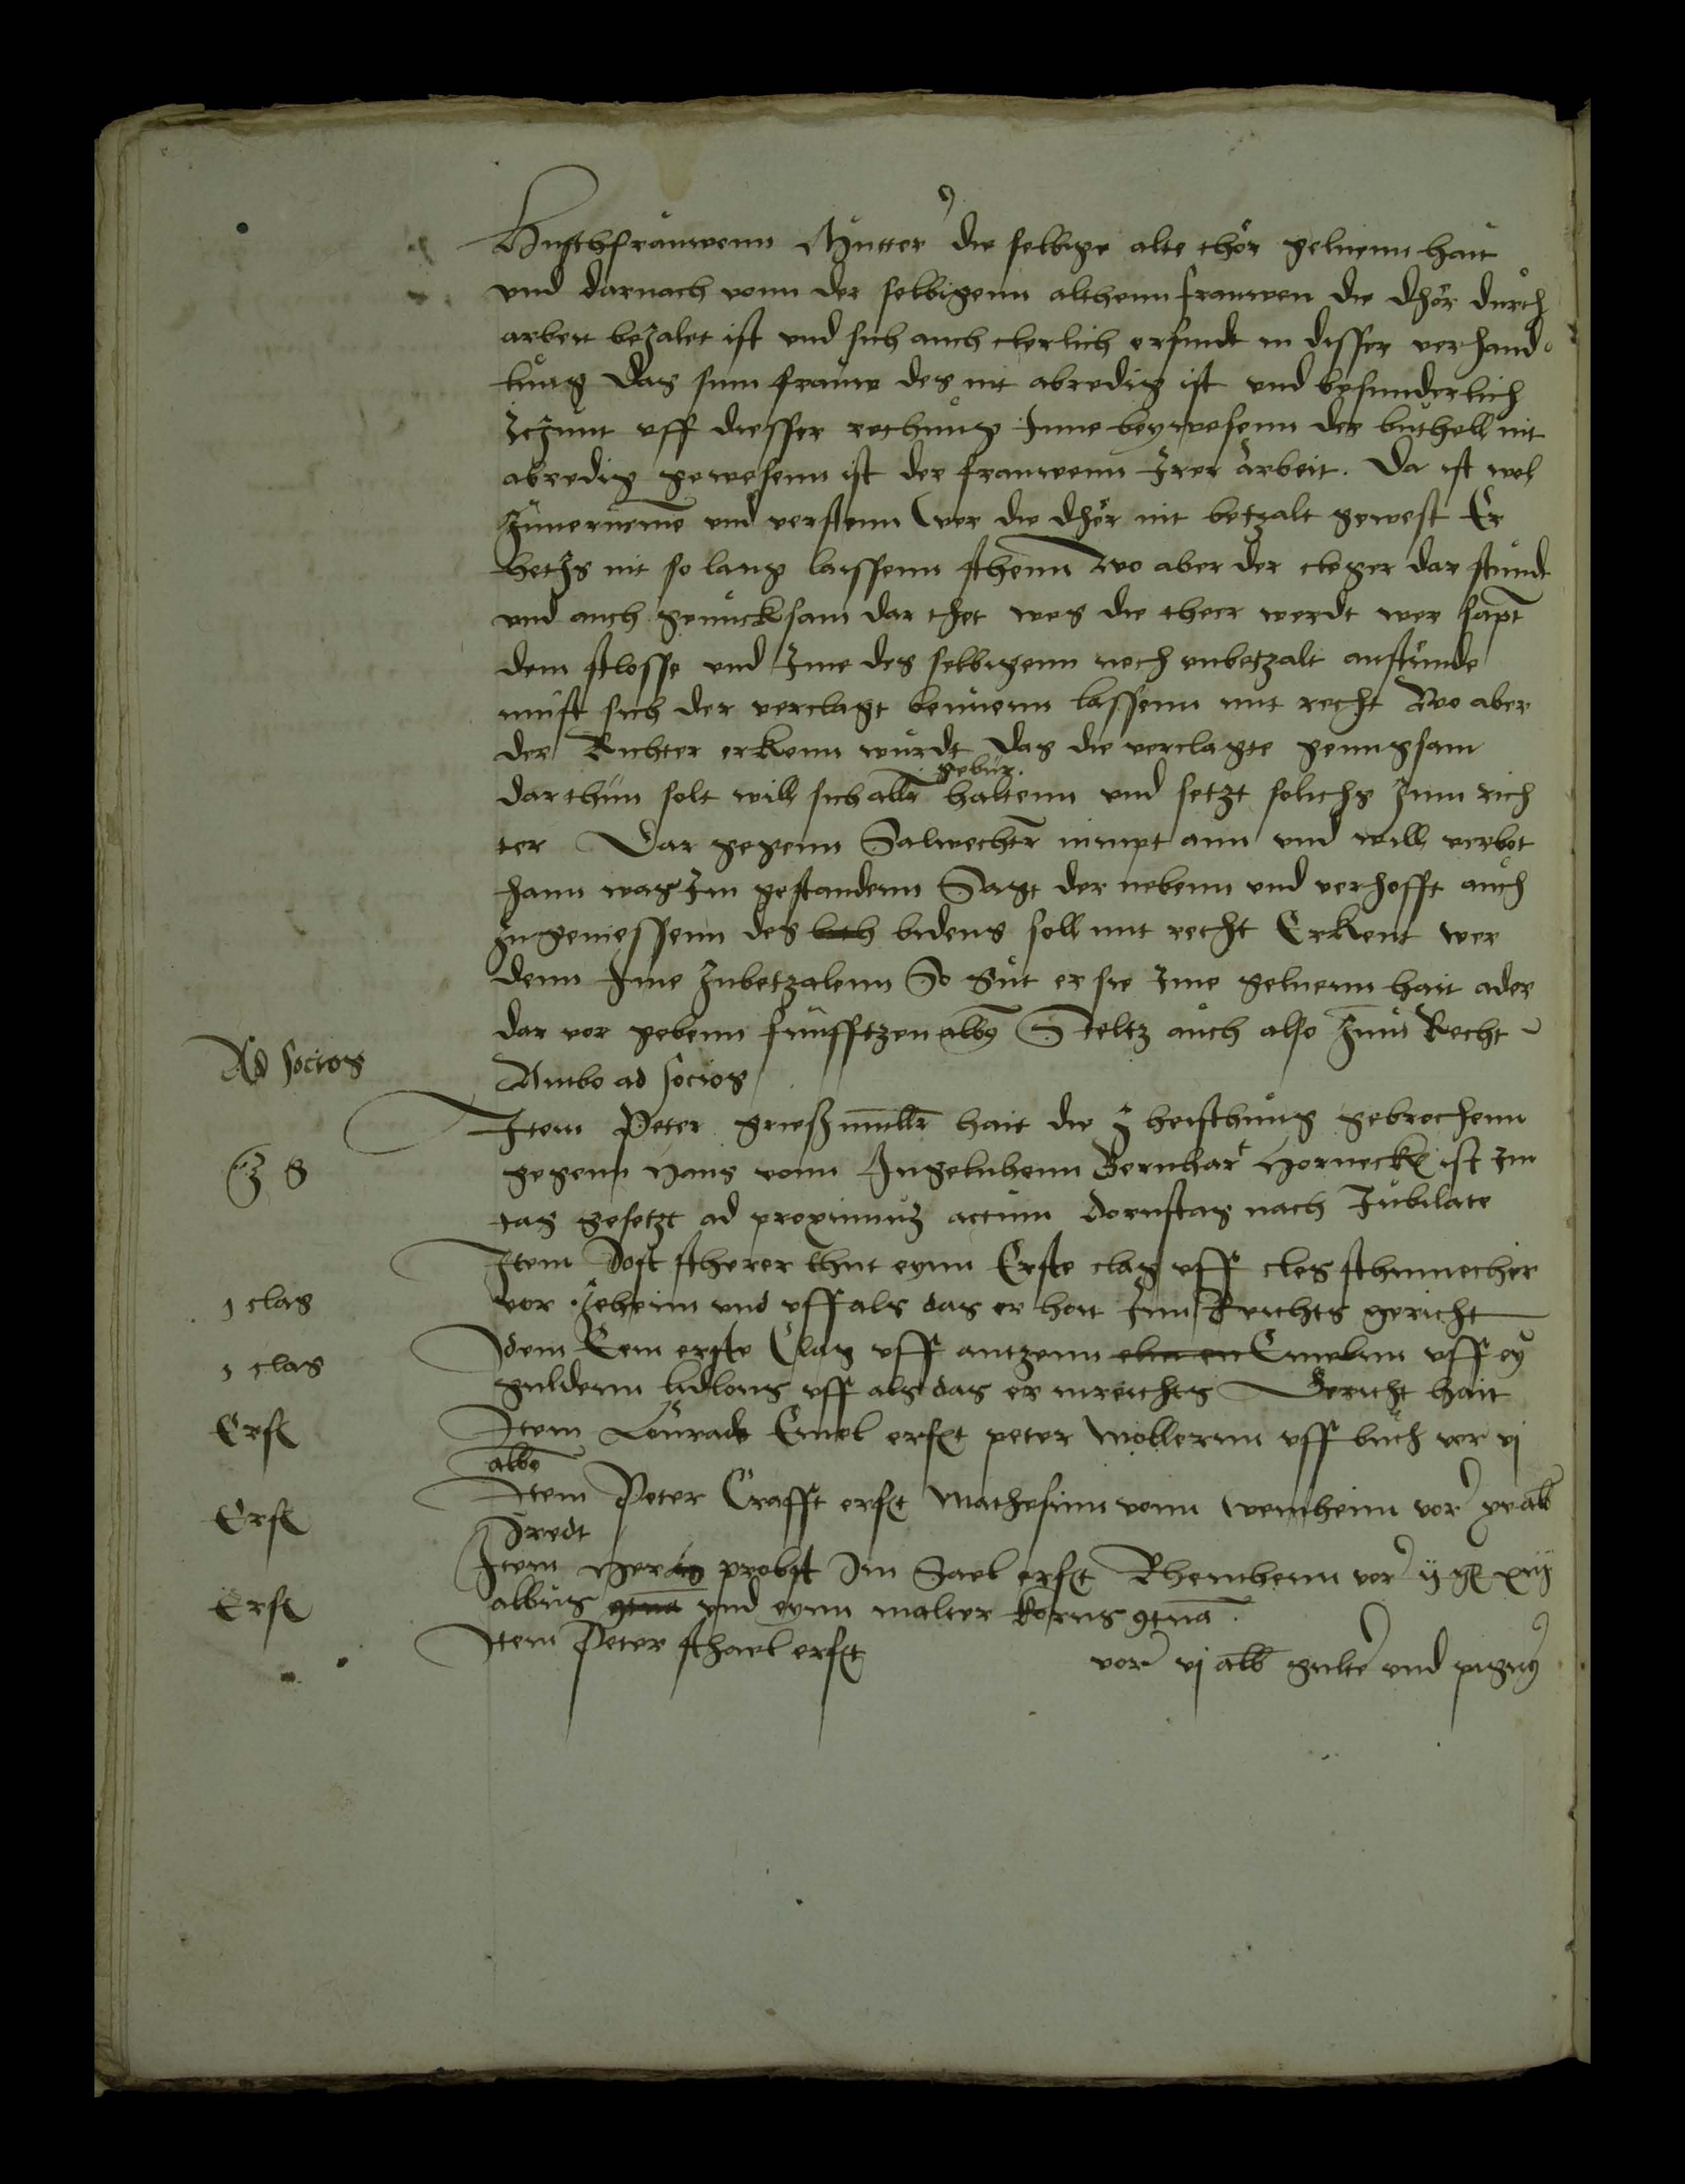 Huschfrauwenn Mutter die selbige alte thör geluenn hait
vnd darnach vonn der selbigenn althenn frauwen die dhör durch
arbeit bezalet ist vnd sich auch clerlich erfindt in disser verhand
lung das sinn frauw des nit abredig ist vnd besunderlich
Itzunt vff diesser rechung Inne beywesenn der buthell nit
abredig gewesenn ist der frauwenn Irer arbeit. Da ist wol
Zuuernemē vnd verstenn wer die dhör nit betzalt gewest Er
heths nit so lang laissenn sthenn wo aber der cleger dar stundt
vnd auch genuck sam dar thet wes die theer werdt wer sapt
dem slosse vnd Ime des selbigenn noch vnbetzalt anstunde
must sich der verclagt benuenn lassenn mit recht wo aber
der Richter erkenn wurdt das die verclagte genugsam
darthun solt will sich aller gebur haltenn vnd setzt solichs Zum rich
ter Dar gegenn Salwechter nimpt ann vnd will verbot
hann was Im gestandenn Sagt der nebenn vnd verhofft auch
Zu geniessenn des bidens soll mit recht Erkent wer
denn Ime Zubetzalenn So gut er sie Ime geluenn hait ader
dar vor gebenn funfftzen alb9 Steltz auch also Zum Recht
Ad socios
Ambo ad socios
Item Peter grieß muller hait die heisthung gebrochenn
gegenn Hans vonn Ingelnhenn Bernhart Hornecke ist Im
tag gesetzt ad proximum actum dornstag nach Jubilate
Item Jost scherer thut eynn Erste clag vff cles sthumecher
1 clag
vor Zeheim vnd vff als das er hait Inn Reichts gericht
1 clag
Idem Eem erste Clag vff antzenn Emeln vff ey
guldenn lidlons vff als das er inreichts Gericht hait
Erf
Item Conradt Emel erft peter mollernn vff buch vor vj
albo
Erf
Item Peter Crafft erft Mathesinn vonn wernheim vor xv alb
Idredt
Item Her probst Im Sael erft Rhembenn vor ij gl xiij
Erf
albus vnd eynn malter korns gtna
Item Peter schael erft vor vj alb gulte vnd pign9